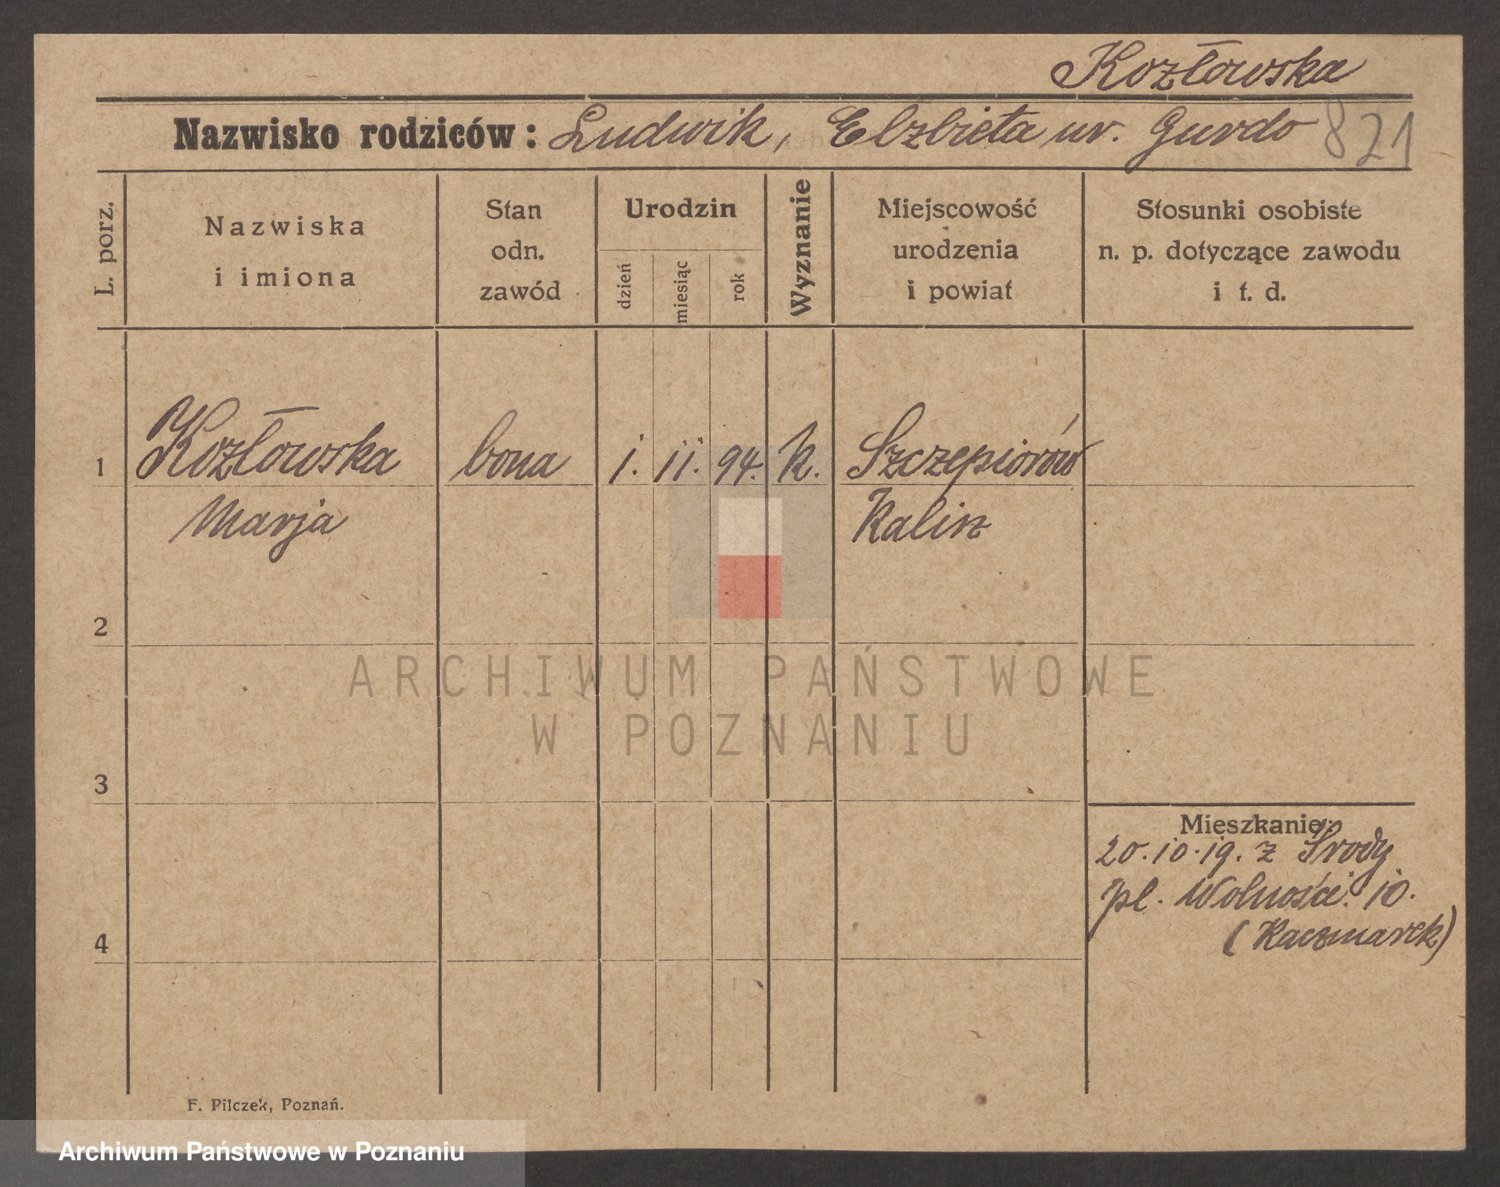 Kozłowska
Nazwisko rodziców: Ludwik, Elzbieta ur. Gurdo 821
L. porz.
Nazwiska
i imiona
Stan
odn.
zawód
Urodzin
dzień
miesiąc
rok
Wyznanie
Miejscowość
urodzenia
i powiat
Stosunki osobiste
n. p. dotyczące zawodu
i t. d.
1 Kozłowska bona 1. 11. 94. k. Szczepiorów
Marja Kalisz
2
ARCHIWUM PAŃSTWOWE
W POZNANIU
3
Mieszkanie:
20.10.19. z Środy
pl. Wolności. 10.
(Kaczmarek)
4
F. Pilczek, Poznań.
Archiwum Państwowe w Poznaniu